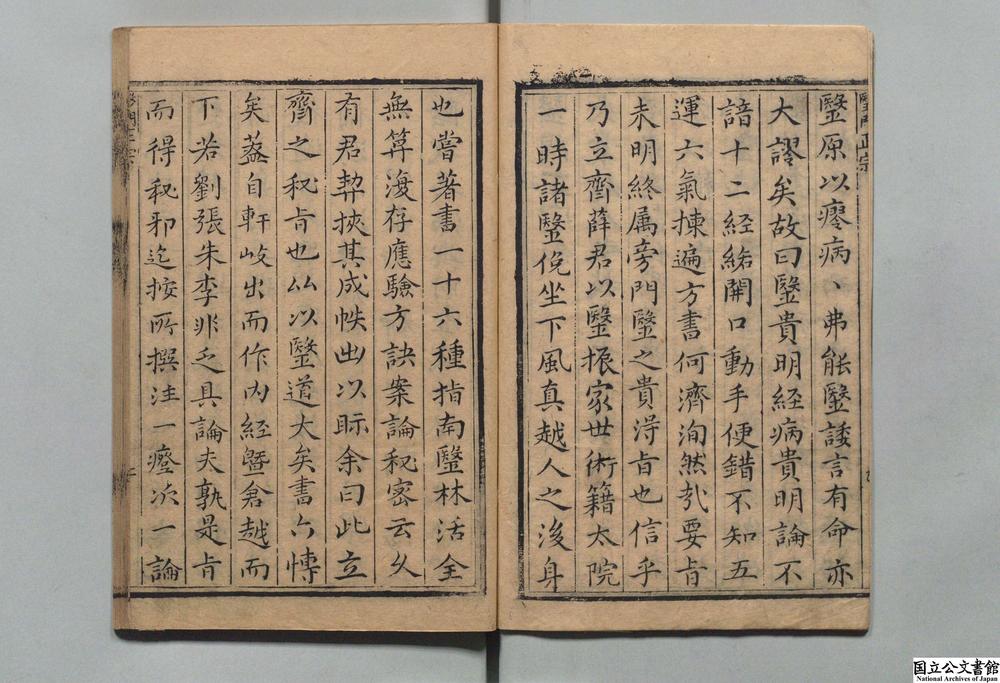 毉原以瘳病、弗能毉諉言有命亦
大謬矣故曰毉貴明經病貴明論不
諳十二經絡開口動手便錯不知五
運六氣揀遍方書何濟洵然㢤要旨
未明終属旁門毉之貴淂旨也信乎
乃立齊薛君以毉振家世術籍太院
一時諸毉俛坐下風真越人之後身
也嘗著書一十六種指南毉林活全
無筭渙存應驗方訣案論秘密云乆
有君契挾其成帙出以眎余曰此立
齊之秘旨也厶以毉道大矣書亦慱
矣葢自軒岐出而作內經暨倉越而
下若劉張朱李非乏具論夫孰是旨
而得秘邪迄按所撰注一癥次一論
國立公文書館
National Archives of Japan